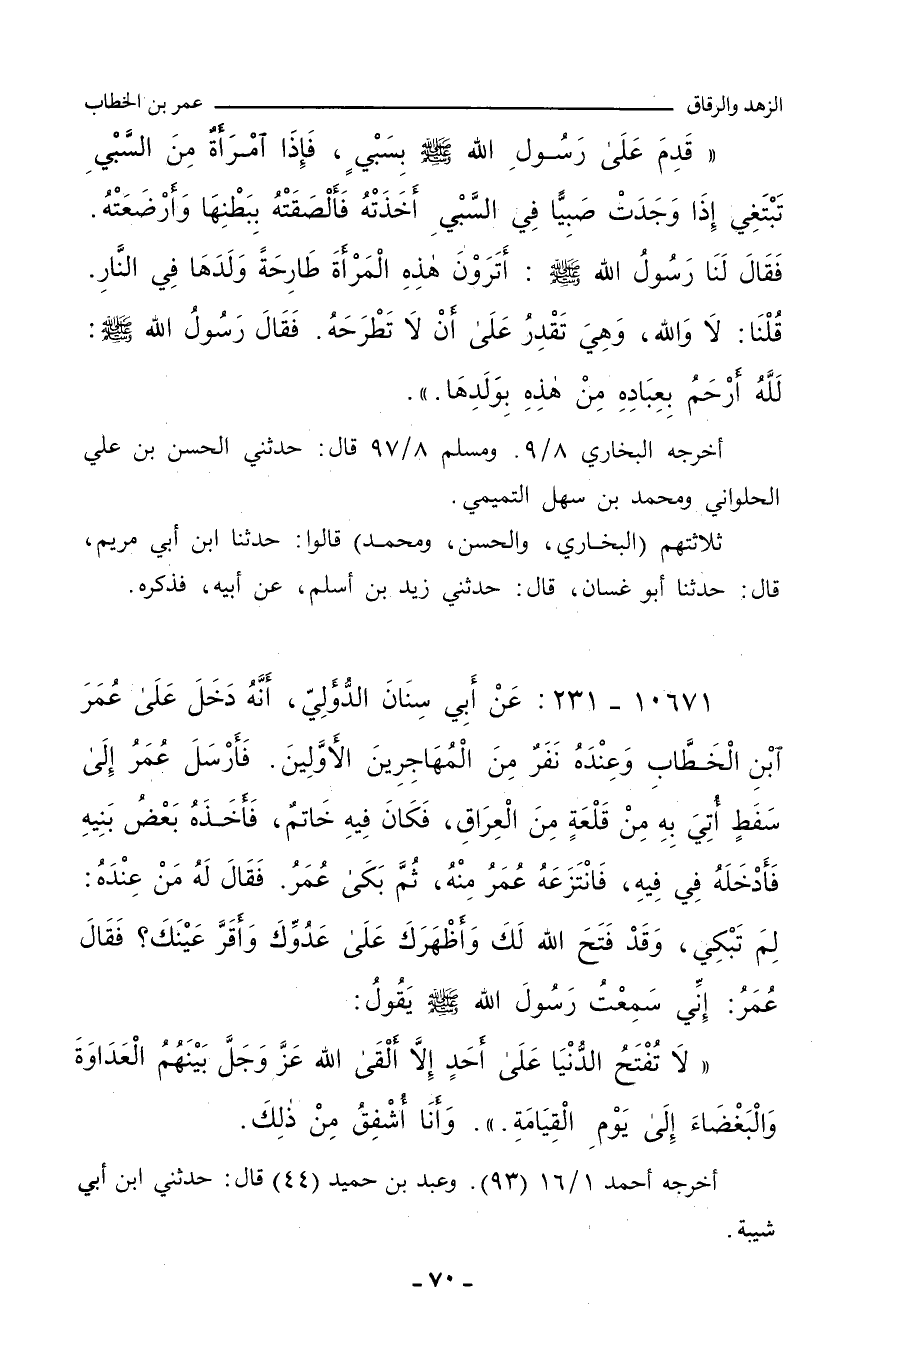 الزهد والرقاق ـــــــــــــــــ عمر بن الخطاب
« قَدِمَ عَلَىٰ رَسُـولِ الله ﷺ بِسَبْيٍ، فَإِذَا ٱمْـرَأَةٌ مِنَ السَّبْيِ
تَبْتَغِي إِذَا وَجَدَتْ صَبِيًّا فِي السَّبْيِ أَخَذَتْهُ فَأَلْصَقَتْهُ بِبَطْنِهَا وَأَرْضَعَتْهُ.
فَقَالَ لَنَا رَسُولُ الله ﷺ : أَتَرَوْنَ هٰذِهِ الْمَرْأَةَ طَارِحَةً وَلَدَهَا فِي النَّارِ.
قُلْنَا: لَا وَالله، وَهِيَ تَقْدِرُ عَلَىٰ أَنْ لَا تَطْرَحَهُ. فَقَالَ رَسُولُ الله ﷺ:
لَلَّهُ أَرْحَمُ بِعِبَادِهِ مِنْ هٰذِهِ بِوَلَدِهَا.».
أخرجه البخاري ٩/٨. ومسلم ٩٧/٨ قال: حدثني الحسن بن علي
الحلواني ومحمد بن سهل التميمي.
ثلاثتهم (البخـاري، والحسن، ومحمـد) قالوا: حدثنا ابن أبي مريم،
قال: حدثنا أبو غسان، قال: حدثني زيد بن أسلم، عن أبيه، فذكره.
١٠٦٧١ - ٢٣١: عَنْ أَبِي سِنَانَ الدُّؤَلِيّ، أَنَّهُ دَخَلَ عَلَىٰ عُمَرَ
ٱبْنِ الْخَـطَّابِ وَعِنْدَهُ نَفَرٌ مِنَ الْمُهَاجِرِينَ الأَوَّلِينَ. فَأَرْسَلَ عُمَرُ إِلَىٰ
سَفَطٍ أُتِيَ بِهِ مِنْ قَلْعَةٍ مِنَ الْعِرَاقِ، فَكَانَ فِيهِ خَاتمٌ، فَأَخَـذَهُ بَعْضُ بَنِيهِ
فَأَدْخَلَهُ فِي فِيهِ، فَانْتَزَعَهُ عُمَرُ مِنْهُ، ثُمَّ بَكَىٰ عُمَرُ. فَقَالَ لَهُ مَنْ عِنْدَهُ:
لِمَ تَبْكِي، وَقَدْ فَتَحَ الله لَكَ وَأَظْهَرَكَ عَلَىٰ عَدُوِّكَ وَأَقَرَّ عَيْنَكَ؟ فَقَالَ
عُمَرُ: إِنِّي سَمِعْتُ رَسُولَ الله ﷺ يَقُولُ:
« لَا تُفْتَحُ الدُّنْيَا عَلَىٰ أَحَدٍ إِلَّا أَلْقَىٰ الله عَزَّ وَجَلَّ بَيْنَهُمُ الْعَدَاوَةَ
وَالْبَغْضَاءَ إِلَىٰ يَوْمِ الْقِيَامَةِ.». وَأَنَا أُشْفِقُ مِنْ ذٰلِكَ.
أخرجه أحمد ١٦/١ (٩٣). وعبد بن حميد (٤٤) قال: حدثني ابن أبي
شيبة.
- ٧٠ -